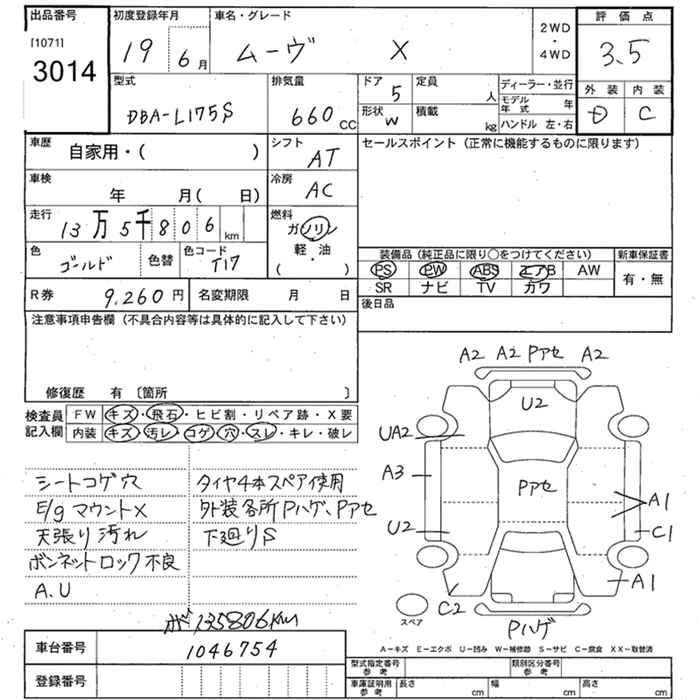 出品番号
[1071]
3014
初度登録年月
19 6月
車名・グレード
ムーヴ X
2WD
・
4WD
評価点
3.5
外装 内装
D C
型式
DBA-L175S
排気量
660 CC
ドア
5
定員
人
形状
W
積載
kg
ディーラー・並行
モデル年式 年
ハンドル 左・右
車歴
自家用・( )
シフト
AT
セールスポイント (正常に機能するものに限ります)
車検
年 月( 日)
冷房
AC
走行
13万5千806 km
燃料
ガソリン
軽・油
( ・ )
色
ゴールド
色替
色コード
T17
装備品 (純正品に限り○をつけてください)
PS PW ABS エアB AW
SR ナビ TV カワ
新車保証書
有・無
R券
9,260円
名変期限 月 日
後日品
注意事項申告欄 (不具合内容等は具体的に記入して下さい)
修復歴 有 〔箇所 〕
検査員記入欄
FW キズ・飛石・ヒビ割・リペア跡・X要
内装 キズ・汚レ・コゲ・穴・スレ・キレ・破レ
シートコゲ穴
E/gマウントX
天張り汚れ
ボンネットロック不良
A.U
タイヤ4本スペア使用
外装各所Pハゲ、Pアセ
下廻りS
A2 A2 Pアセ A2
U2
UA2
A3
Pアセ
A1
U2
C1
A1
C2
スペア
Pハゲ
A－キズ E－エクボ U－凹み W－補修跡 S－サビ C－腐食 XX－取替済
135806KM
車台番号
1046754
登録番号
型式指定番号
参考
類別区分番号
参考
車庫証明用
参考
長さ cm
幅 cm
高さ cm